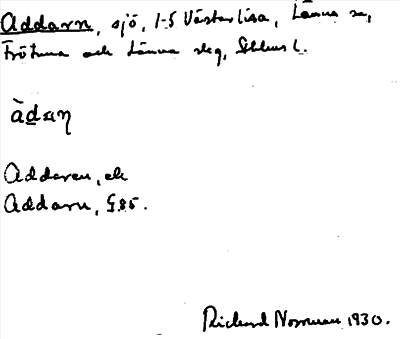 Addarn, sjö, 1-5 Västerlisa, Länna sn,
Frötuna och Länna skg, Sthlms l.
àdaη
Addaren, ek
Addarn, G85.
Rickard Norrman 1930.